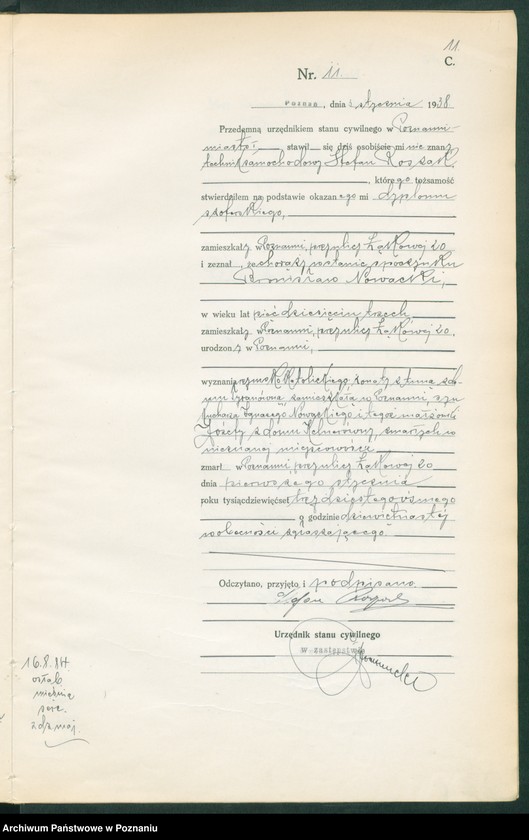 11.
C.
Nr. 11.
Poznań, dnia stycznia 1938
Przedemną urzędnikiem stanu cywilnego w Poznaniu
miasto, stawił się dziś osobiście mi nie znany
technik samochodowy Stefan
, którego tożsamość
stwierdziłem na podstawie okazanego mi dyplomu
szoferskiego,
zamieszkały w Poznaniu, przy ulicy Łąkowej 20
i zeznał, że chorąży w stanie spoczynku
Nowacki,
w wieku lat pięćdziesięciu trzech
zamieszkały w Poznaniu, przy ulicy Łąkowej 20.
urodzony w Poznaniu,
wyznania rzymsko katolickiego, żonaty z
zamieszkałą w Poznaniu, syn
Ignacego Nowackiego i tegoż małżonki
Józefy z domu zmarłych w
nieznanej miejscowości
zmarł w Poznaniu, przy ulicy Łąkowej 20
dnia pierwszego stycznia
roku tysiącdziewięćset trzydziestego ósmego
o godzinie dziewiętnastej
w obecności zgłaszającego.
Odczytano, przyjęto i podpisano.
Urzędnik stanu cywilnego
w zastępstwie
16.8.
osłab
mięśnia
serc.
Archiwum Państwowe w Poznaniu